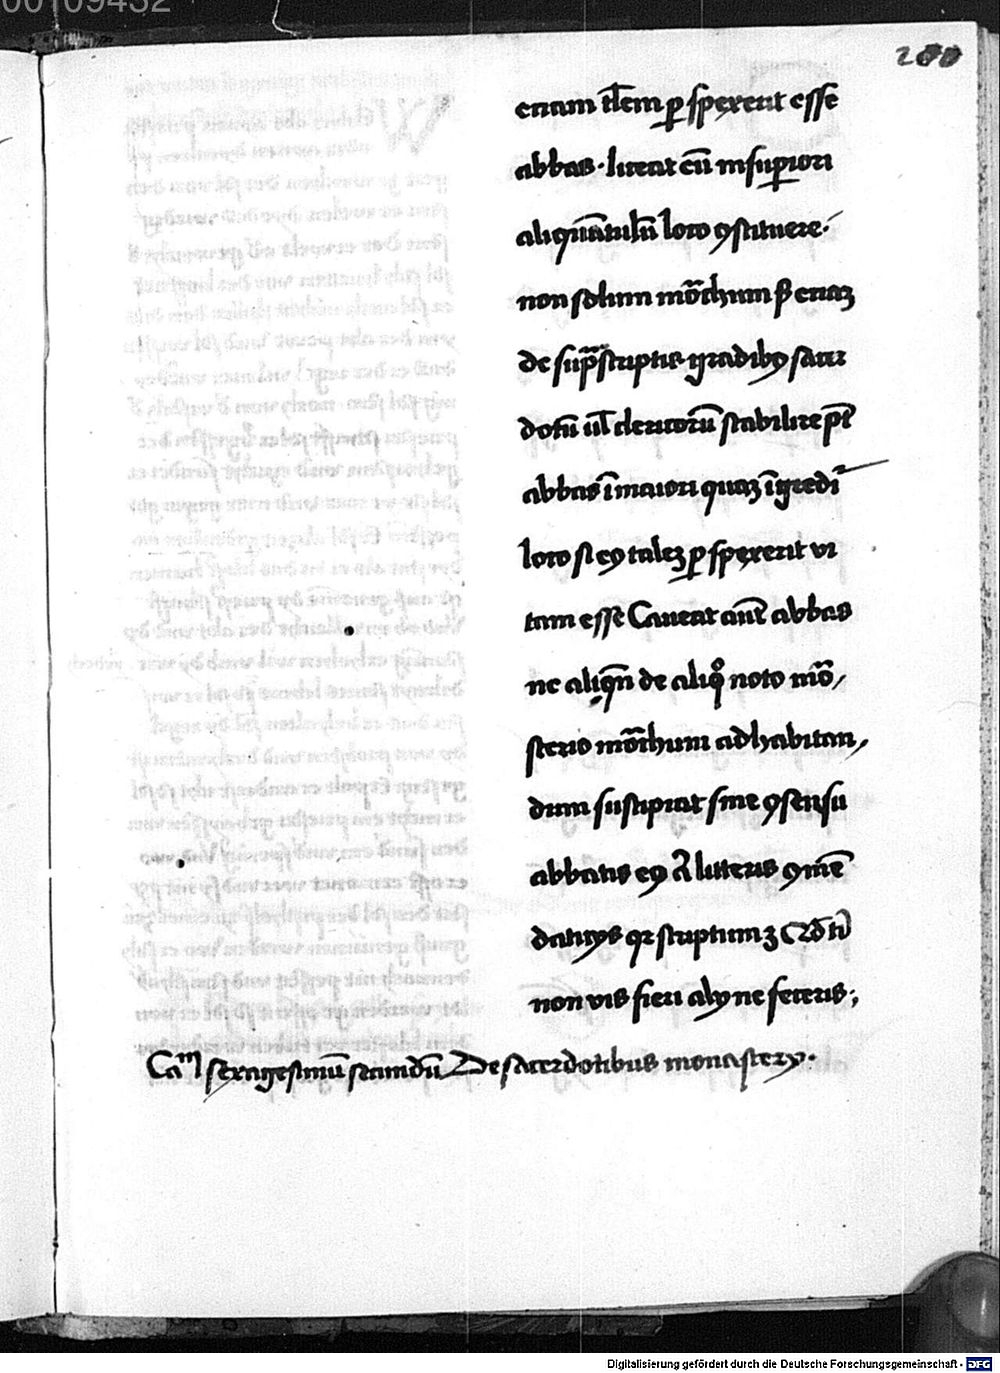 00109432
200
etiam tlem ꝑ spexerit esse
abbas · liceat eū in suꝑiori
aliquātulū loco ꝯstituere ·
non solum mōchum s̄ etiaʒ
de sup̄scriptis gradibꝯ sacer
dotū ul̄ clericorū stabilire pt̄
abbas ī maiori quaʒ īgredit̄
loco si eꝯ taleʒ ꝑ spexerit vi
tam esse Caueat aut̄ abbas
ne aliqn̄ de alio noto mō/
sterio mōchum ad habitan/
dum suscipiat sine ꝯsensu
abbatis eꝯ ł litteris ꝯmē
daticijs qꝛ scriptum ʒ Qd̄ t̄
non vis fieri alij ne feceris ;
Cam̄ sexagesimū secundū De sacerdotibus monastery ·
Digitalisierung gefördert durch die Deutsche Forschungsgemeinschaft - DFG